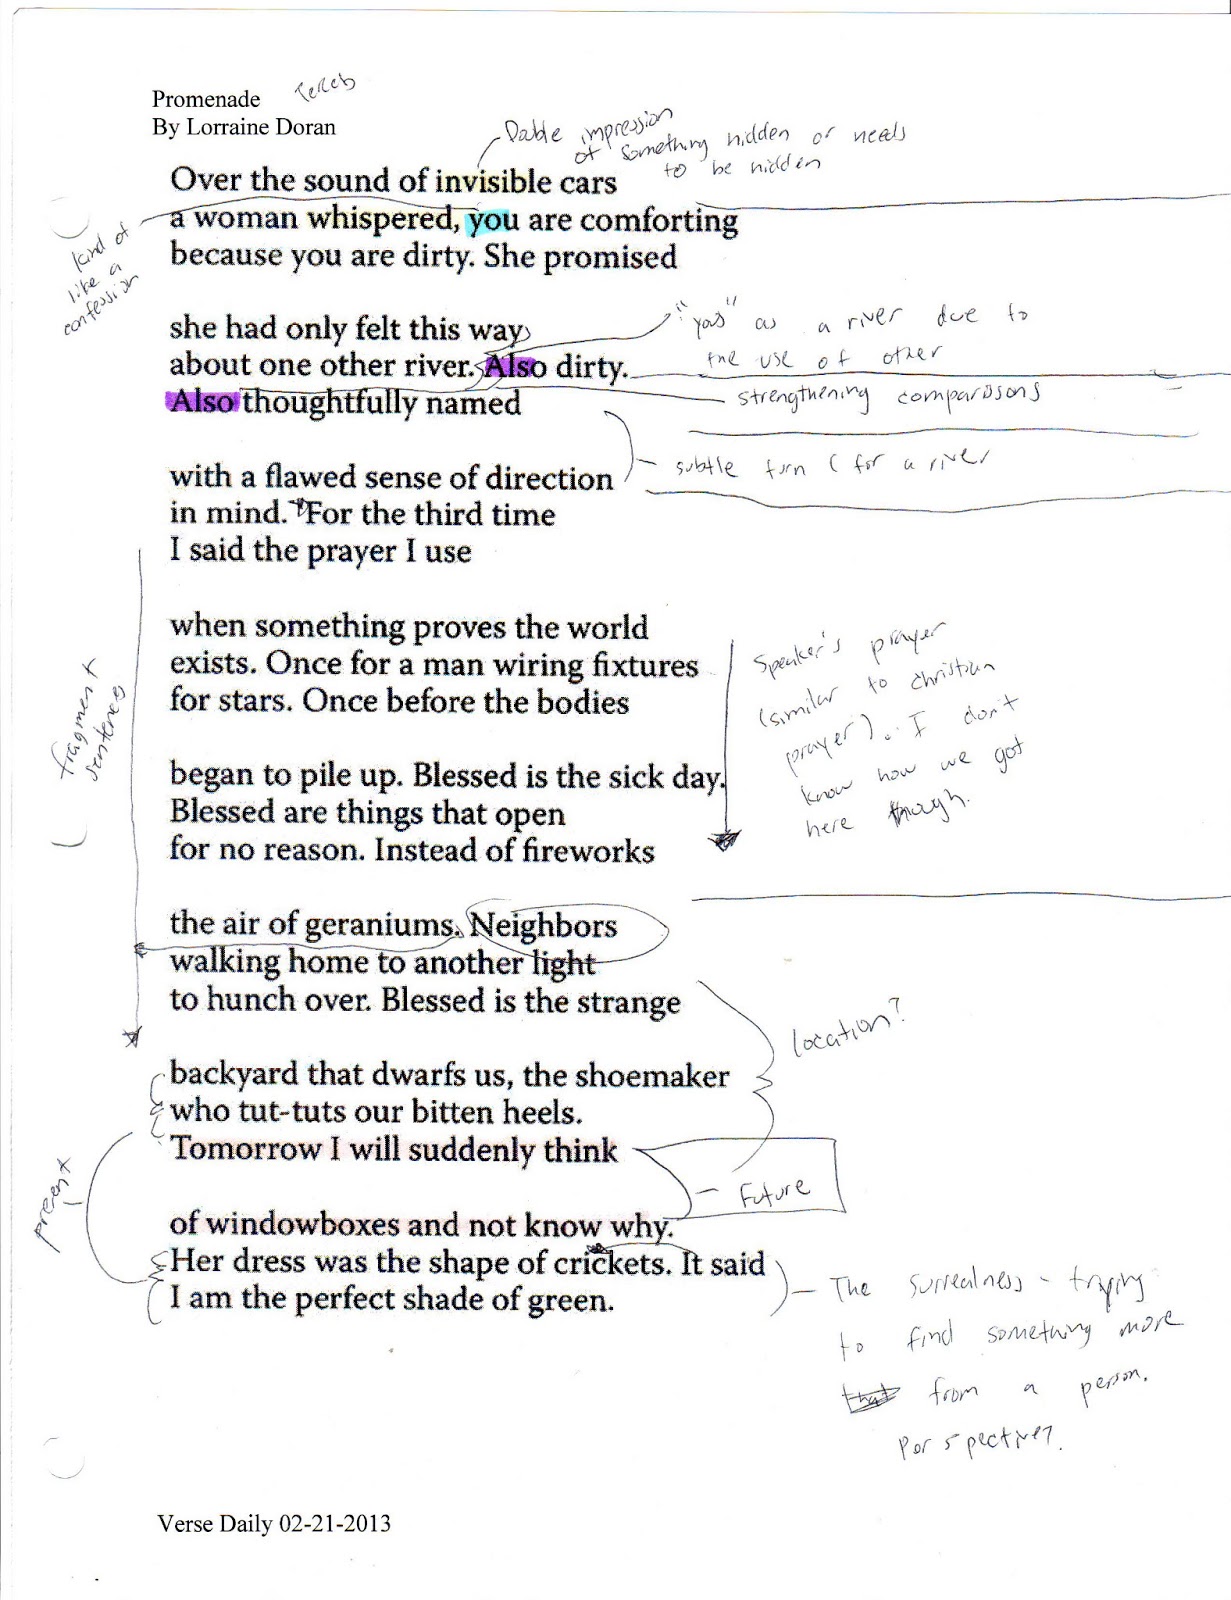 Promenade
By Lorraine Doran
Doble impression
of something hidden or needs
to be hidden
Over the sound of invisible cars
a woman whispered, you are comforting
because you are dirty. She promised
kind of
like a
confession
she had only felt this way
about one other river. Also dirty.
Also thoughtfully named
"you" as a river due to
the use of other
strengthening comparisons
with a flawed sense of direction
in mind. For the third time
I said the prayer I use
subtle turn (for a river
when something proves the world
exists. Once for a man wiring fixtures
for stars. Once before the bodies
fragment
sentences
Speaker's prayer
(similar to christian
prayer). I don't
know how we got
here though.
began to pile up. Blessed is the sick day.
Blessed are things that open
for no reason. Instead of fireworks
the air of geraniums. Neighbors
walking home to another light
to hunch over. Blessed is the strange
location?
backyard that dwarfs us, the shoemaker
who tut-tuts our bitten heels.
Tomorrow I will suddenly think
Future
present
of windowboxes and not know why.
Her dress was the shape of crickets. It said
I am the perfect shade of green.
The surrealness - trying
to find something more
that from a person.
Perspective?
Verse Daily 02-21-2013